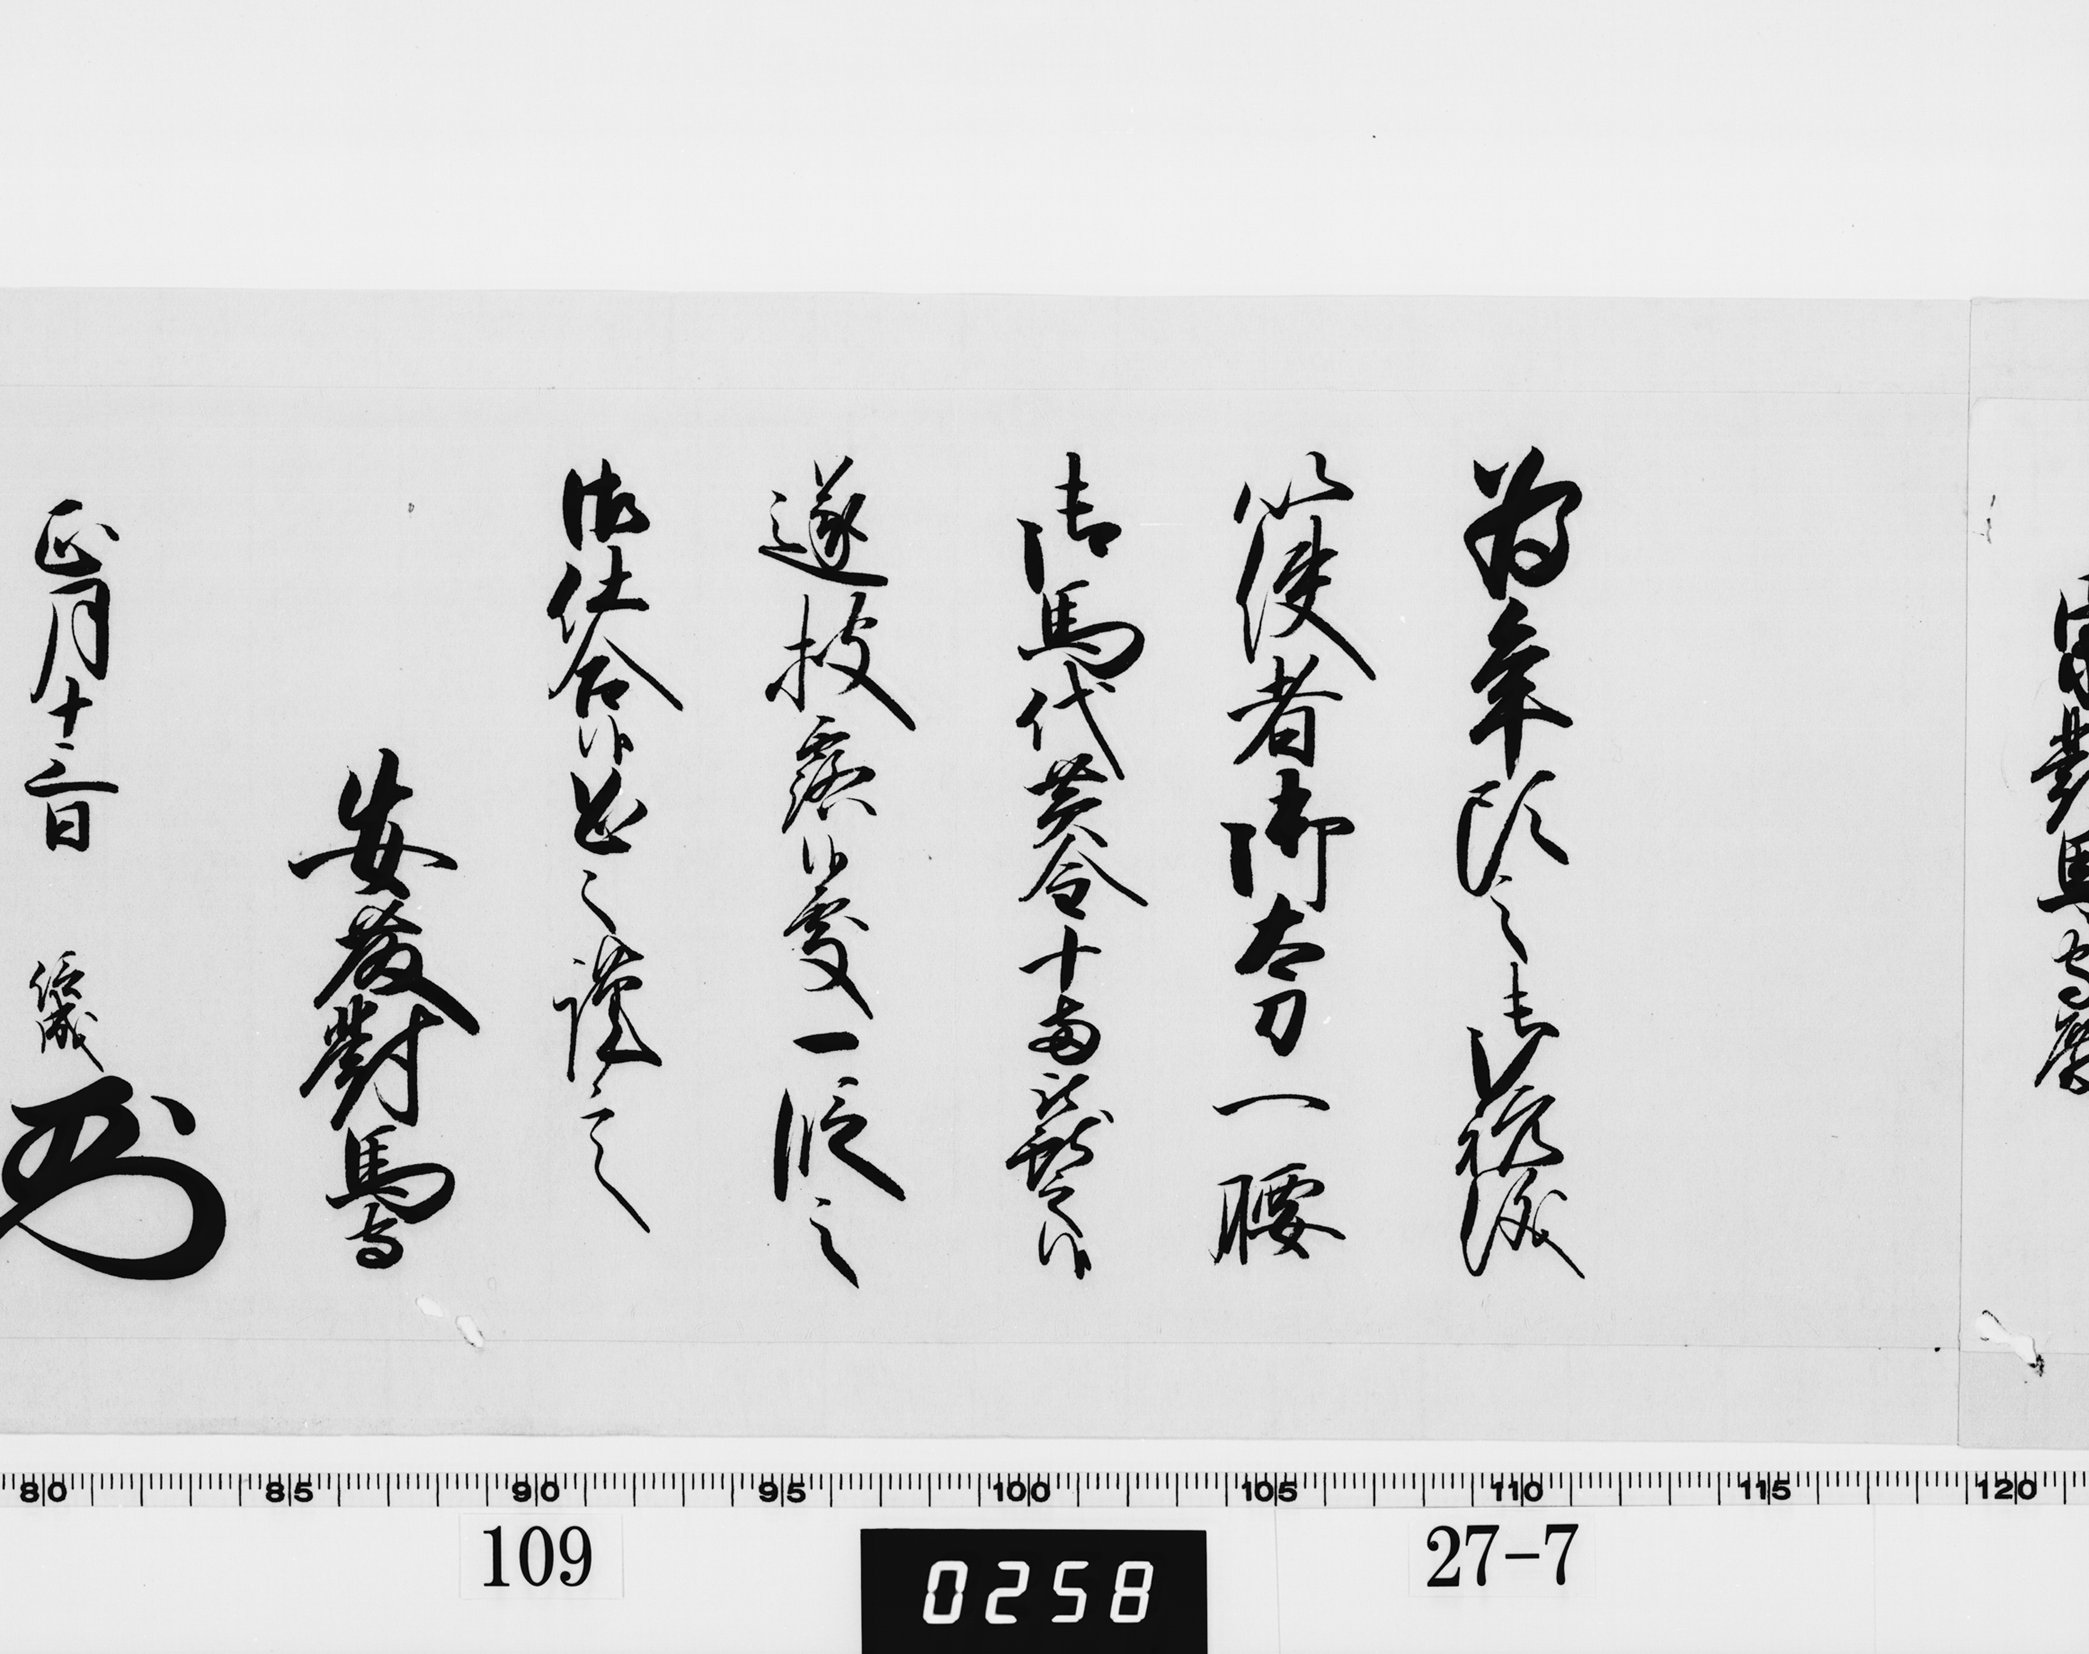 為年頭之御祝儀
以使者御太刀一腰
御馬代黄金十両被献之候
遂披露候処一段之
御仕合候恐々謹言
安藤對馬守
正月十三日 信成
對馬守
80 85 90 95 100 105 110 115 120
109
0258
27-7